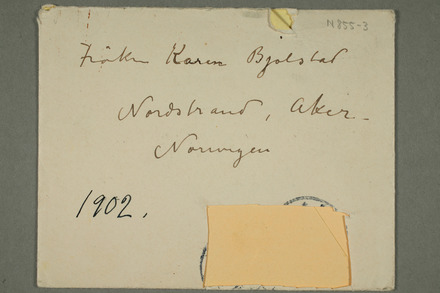 N855-3
Fröken Karin Bjølstad
Nordstrand, Aker.
Norwegen
1902.